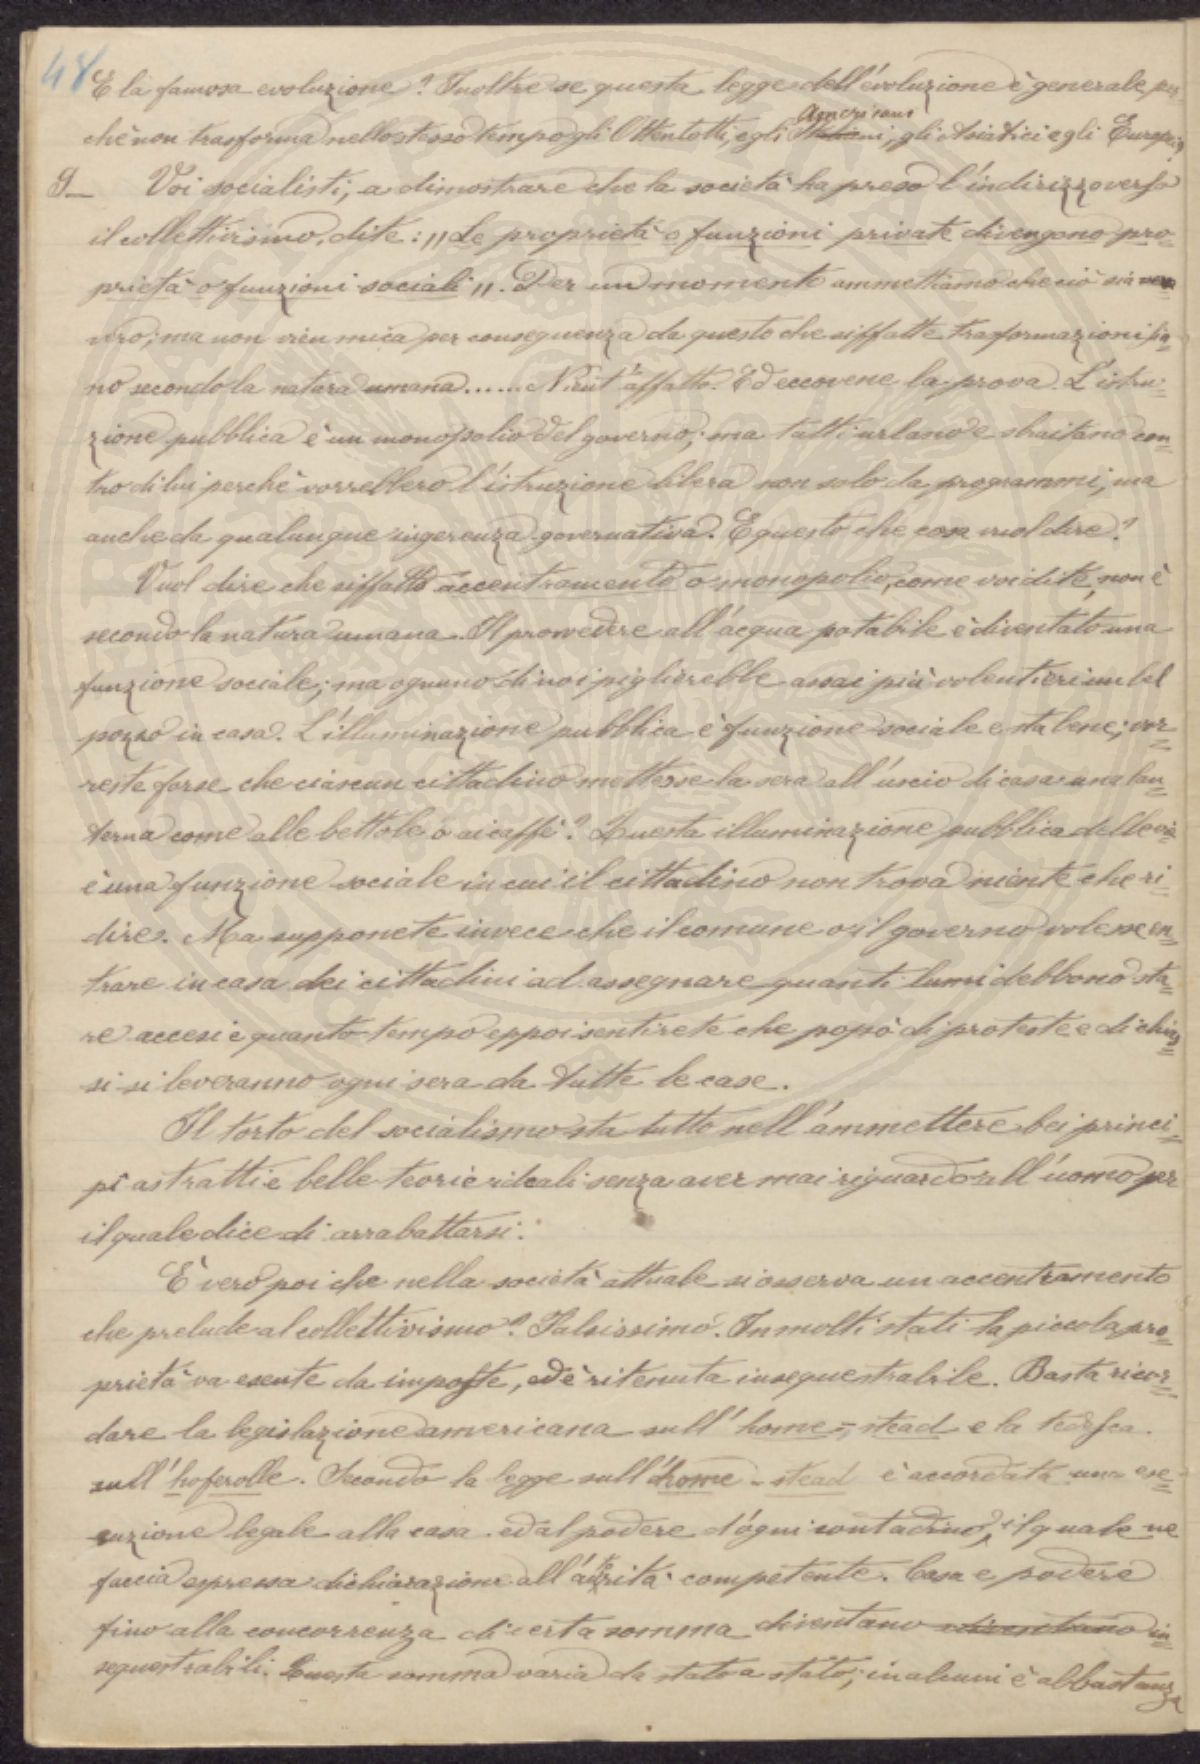 48
E la famosa evoluzione? Inoltre se questa legge dell'evoluzione è generale per-
chè non trasforma nello stesso tempo gli Ottentotti, e gli Americani, gli Asiatici e gli Europei?
9_ Voi socialisti, a dimostrare che la società ha preso l'indirizzo verso
il collettivismo, dite: „Le proprietà o funzioni private divengono pro=
prietà o funzioni sociali„. Per un momento ammettiamo che ciò sia
vero; ma non vien mica per conseguenza da questo che siffatte trasformazioni sia=
no secondo la natura umana...... Nient'affatto. Ed eccovene la prova. L'istru=
zione pubblica è un monopolio del governo; ma tutti urlano e sbraitano con=
tro di lui perchè vorrebbero l'istruzione libera non solo da programmi, ma
anche da qualunque ingerenza governativa. E questo che cosa vuol dire?
Vuol dire che siffatto accentramento o monopolio, come voi dite, non è
secondo la natura umana. Il provvedere all'acqua potabile è diventato una
funzione sociale; ma ognuno di noi piglierebbe assai più volentieri un bel
pozzo in casa. L'illuminazione pubblica è funzione sociale e sta bene; vor=
reste forse che ciascun cittadino mettesse la sera all'uscio di casa una lan=
terna come alle bettole o ai caffè? Questa illuminazione pubblica delle vie
è una funzione sociale in cui il cittadino non trova niente che ri=
dire. Ma supponete invece che il comune o il governo volesse en=
trare in casa dei cittadini ad assegnare quanti lumi debbono sta=
re accesi e quanto tempo eppoi sentirete che popò di proteste e di chias=
si si leveranno ogni sera da tutte le case.
Il torto del socialismo sta tutto nell'ammettere bei princi=
pî astratti e belle teorie ideali senza aver mai riguardo all'uomo per
il quale dice di arrabattarsi.
È vero poi che nella società attuale si osserva un accentramento
che prelude al collettivismo? Falsissimo. In molti stati la piccola pro=
prietà va esente da imposte, ed è ritenuta insequestrabile. Basta ricor=
dare la legislazione americana sull'home=stead e la tedesca
sull'hoferolle. Secondo la legge sull'home-stead è accordata una ese=
cuzione legale alla casa ed al podere d'ogni contadino, il quale ne
faccia espressa dichiarazione all'autorità competente. Casa e podere
fino alla concorrenza di certa somma diventano in=
sequestrabili. Questa somma varia da stato a stato; in alcuni è abbastanza